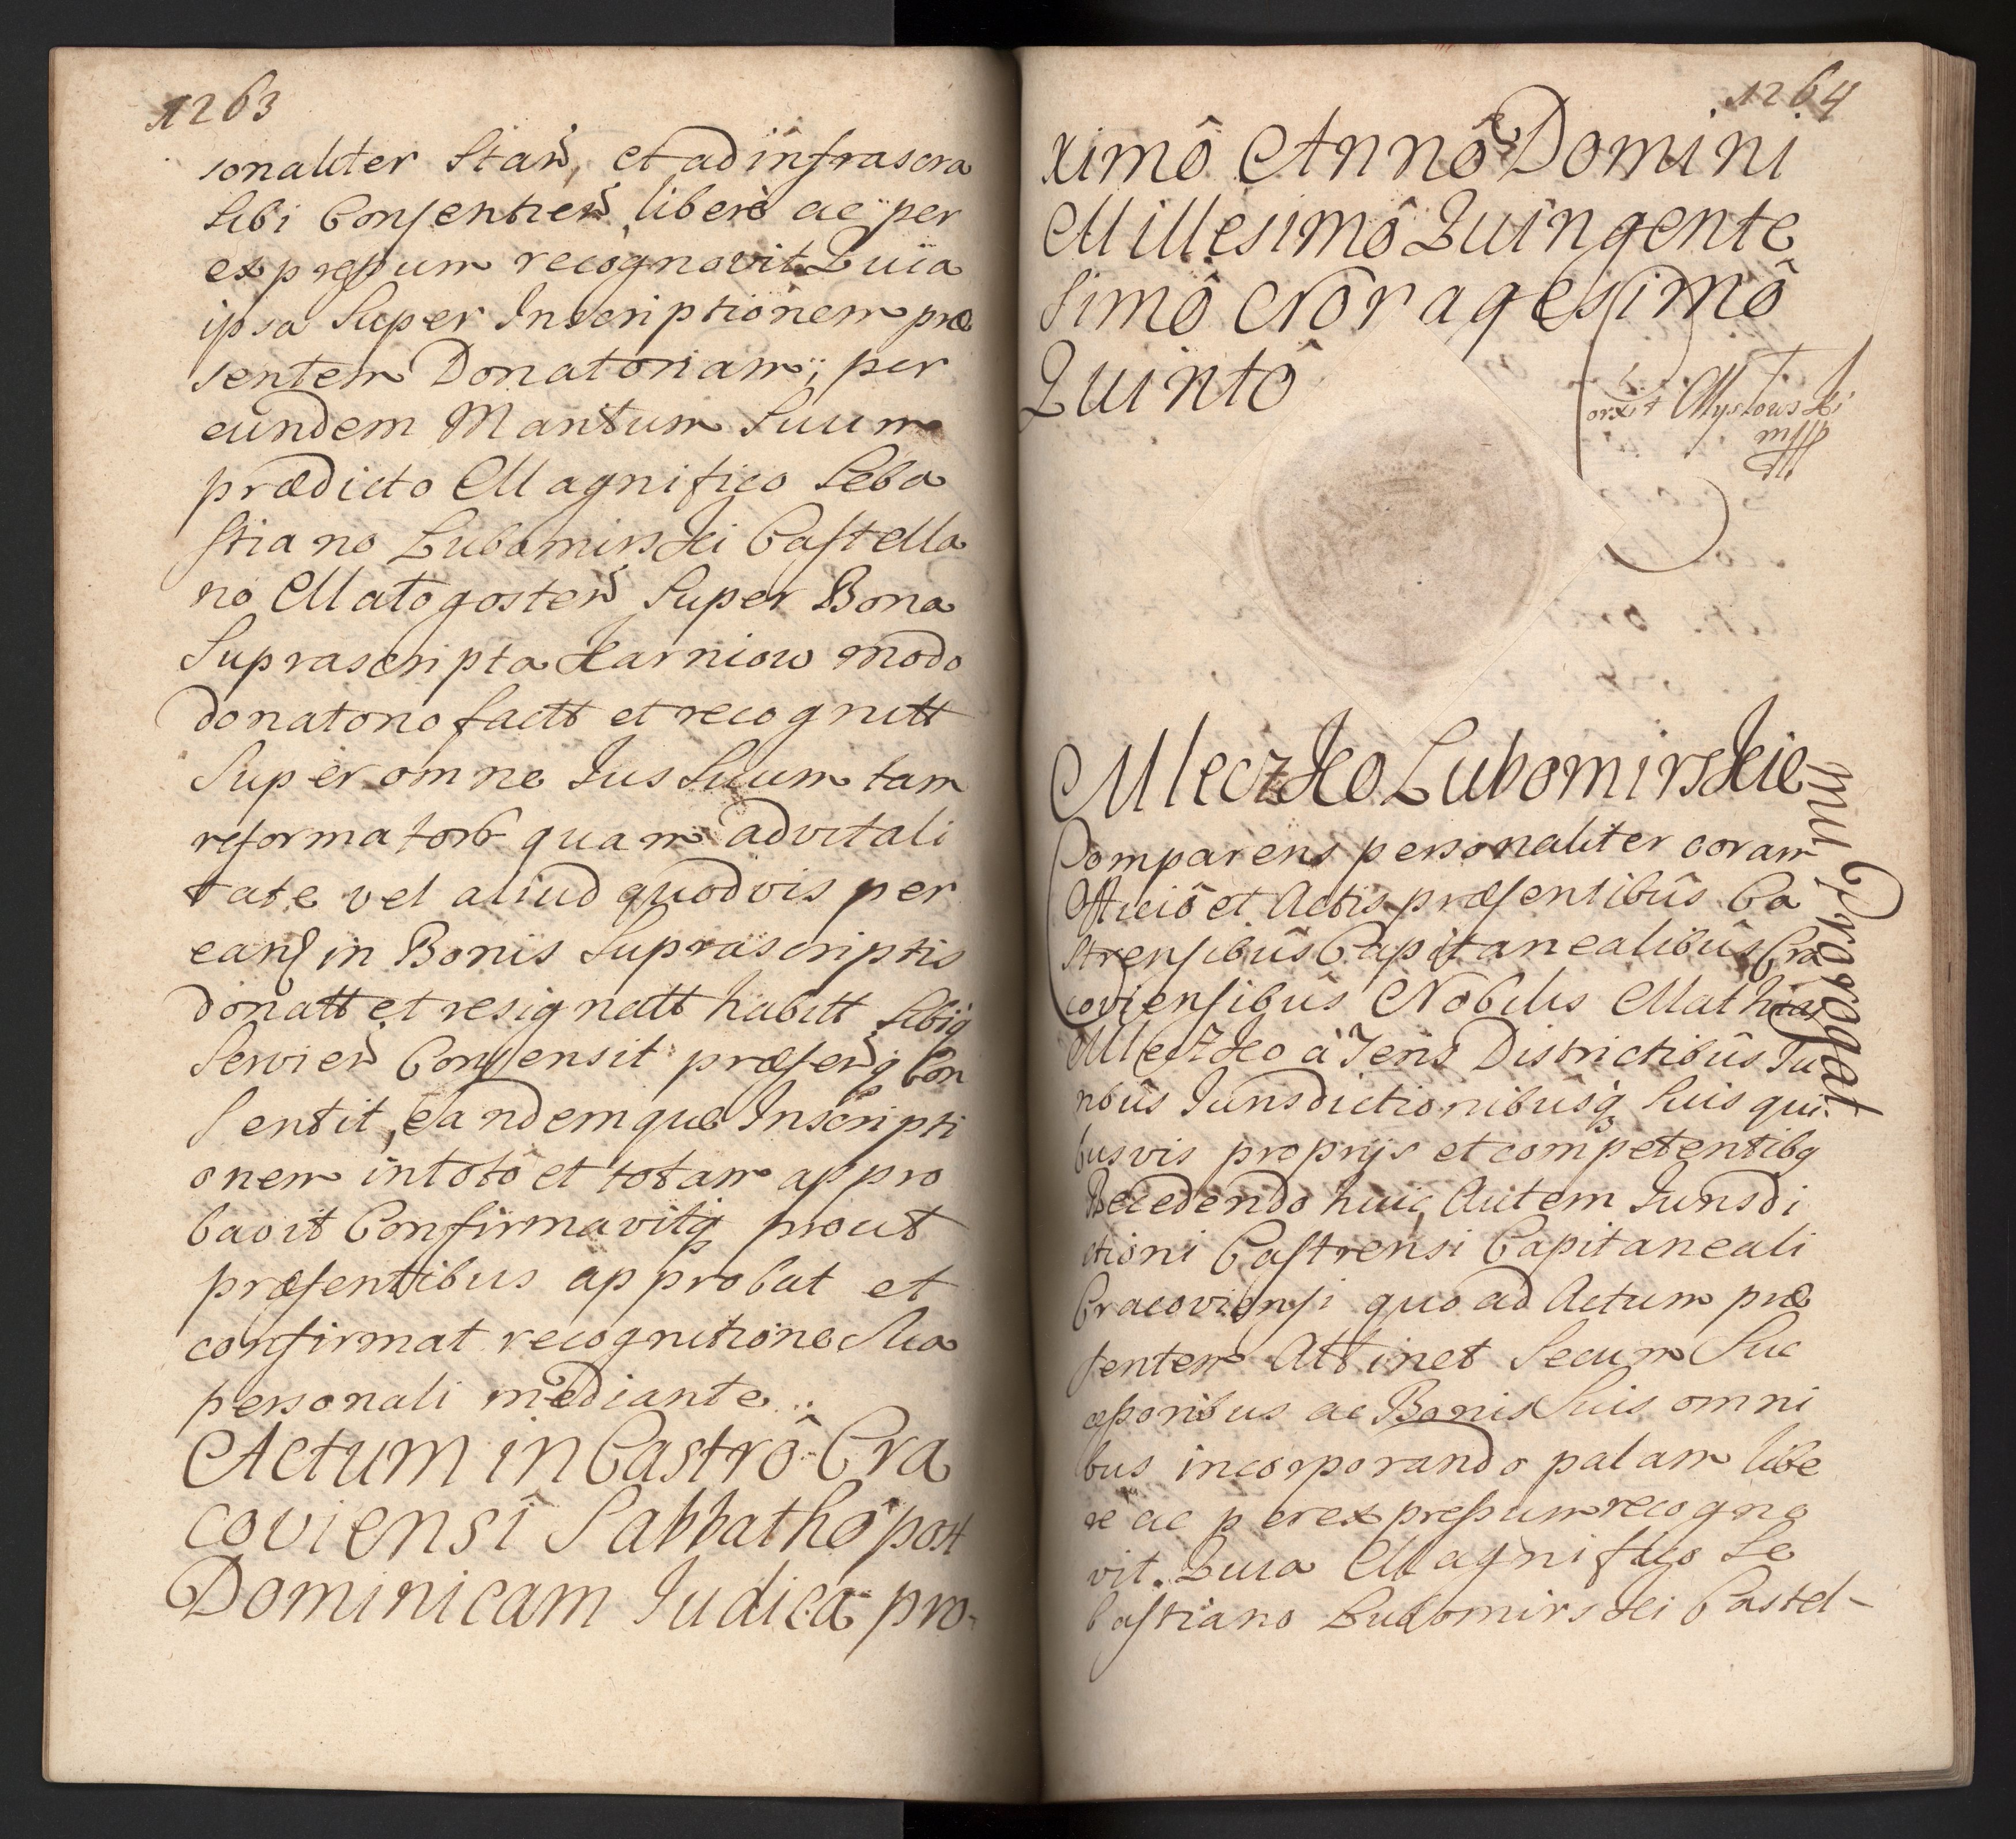 1263
sonaliter Stań, et ad infrascra
Sibi Consentień libere ac per
expressum recognovit Quia
ipsa Super Inscriptionem præ
sentem Donatoriam, per
eundem Maritum Suum
prædicto Magnifico Seba
stiano Lubomirski Castella
no Małogosteń Super Bona
Suprascripta Karniow modo
donatorio factt et recognitt
Super omne Jus Suum tam
reformator quam advitali
tate vel aliud quodvis per
eand in Bonis Suprascriptis
donatt et resignatt habitt Sibiq
Servień Consensit præsenq Con
Sentit, eandemque Inscripti
onem in totô et totam appro
bavit Confirmavitq prout
præsentibus approbat et
confirmat recognitione Sua
personali mediante..
Actum in Castrô Cra
coviensi Sabbathô post
Dominicam Judica pro-
1264
ximô Annô Domini
Millesimô Quingente
Simô Nonagesimô
Quintô
Myslowski
mpp
Mleczko Lubomirskie
mu Prorogat
Comparens personaliter coram
Officiô et Actis præsentibûs Ca
strensibûs Capitanealibûs Cra
coviensibûs Nobilis Mathias
Mleczko â Teris Districtibûs Ju
ribûs Jurisdictionibûsq Suis qui
busvis proprijs et competentibq
Recedendo huic Autem Jurisdi
ctioni Castrensi Capitaneali
Cracoviensi quo ad Actum præ
sentem Attinet Secum Suc
cessoribus ac Bonis Suis omni
bus incorporando palam libe
re ac per expressum recogno
vit. Quia Magnifico Se
bastiano Lubomirski Castel-